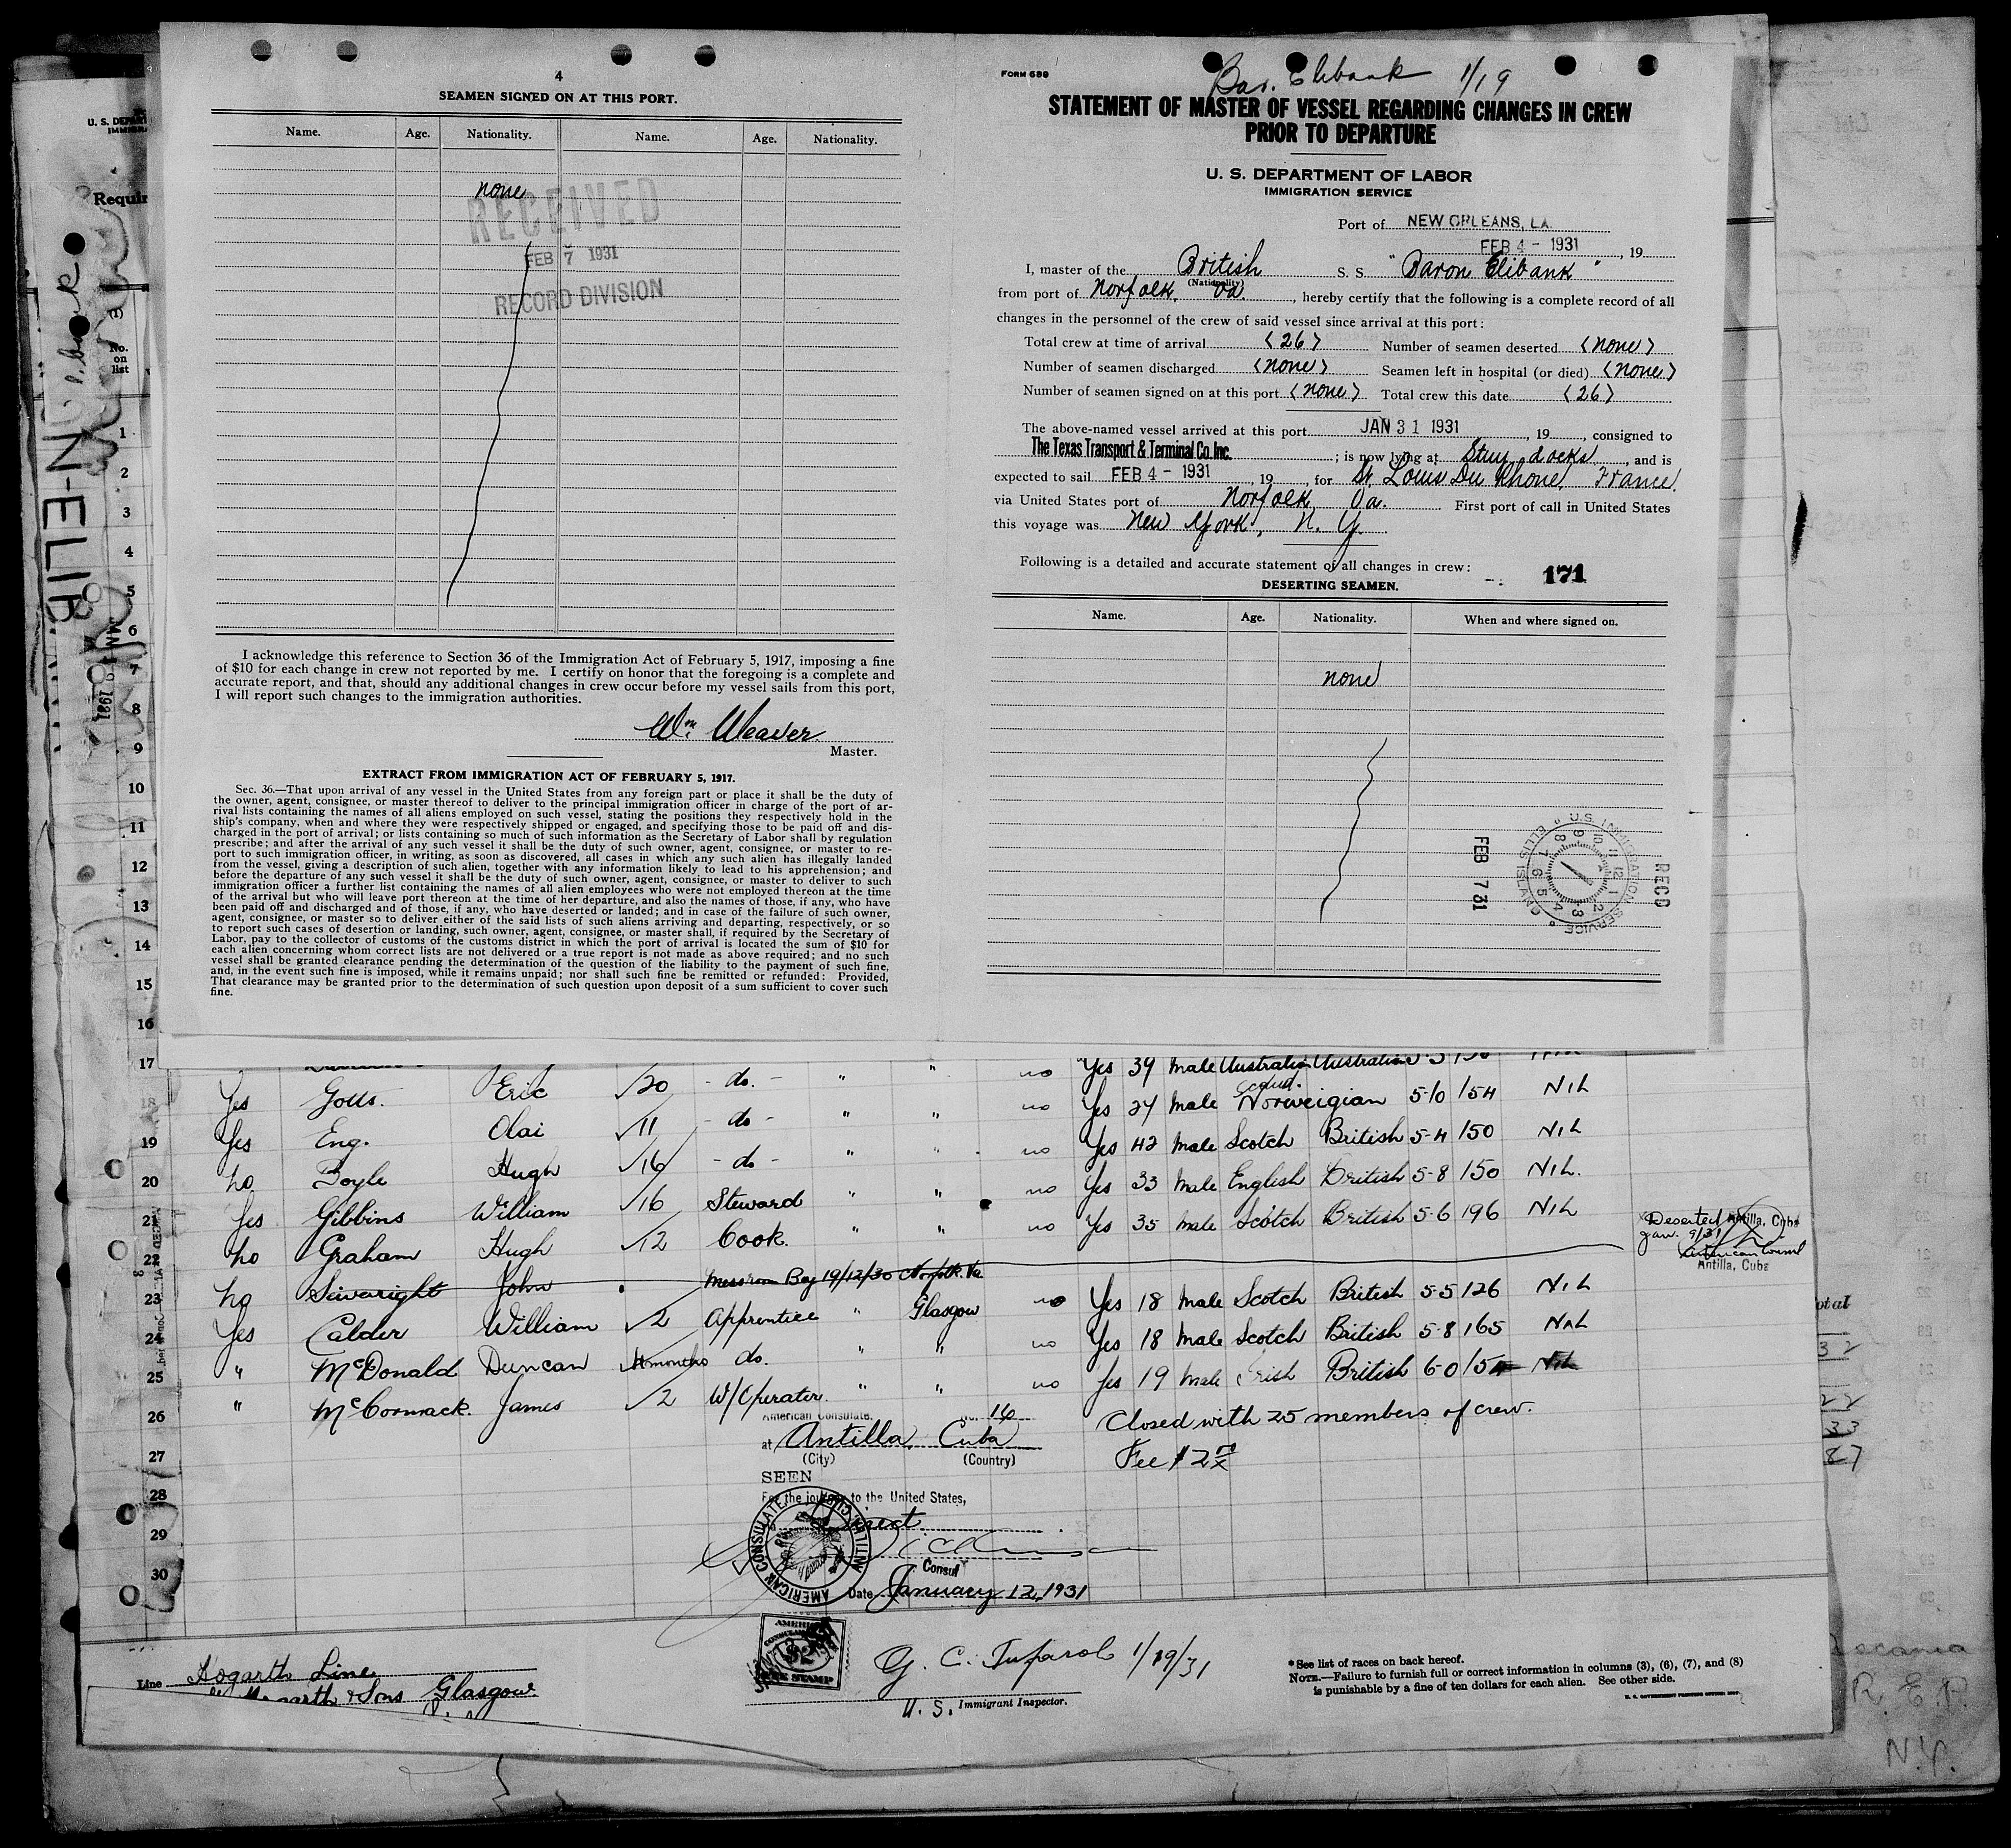 4
SEAMEN SIGNED ON AT THIS PORT.
Name. Age. Nationality. Name. Age. Nationality.
none
RECEIVED
FEB 7 1931
RECORD DIVISION
I acknowledge this reference to Section 36 of the Immigration Act of February 5, 1917, imposing a fine
of $10 for each change in crew not reported by me. I certify on honor that the foregoing is a complete and
accurate report, and that, should any additional changes in crew occur before my vessel sails from this port,
I will report such changes to the immigration authorities.
Wm. Weaver
Master.
EXTRACT FROM IMMIGRATION ACT OF FEBRUARY 5, 1917.
Sec. 36.—That upon arrival of any vessel in the United States from any foreign part or place it shall be the duty of
the owner, agent, consignee, or master thereof to deliver to the principal immigration officer in charge of the port of ar-
rival lists containing the names of all aliens employed on such vessel, stating the positions they respectively hold in the
ship's company, when and where they were respectively shipped or engaged, and specifying those to be paid off and dis-
charged in the port of arrival; or lists containing so much of such information as the Secretary of Labor shall by regulation
prescribe; and after the arrival of any such vessel it shall be the duty of such owner, agent, consignee, or master to re-
port to such immigration officer, in writing, as soon as discovered, all cases in which any such alien has illegally landed
from the vessel, giving a description of such alien, together with any information likely to lead to his apprehension; and
before the departure of any such vessel it shall be the duty of such owner, agent, consignee, or master to deliver to such
immigration officer a further list containing the names of all alien employees who were not employed thereon at the time
of the arrival but who will leave port thereon at the time of her departure, and also the names of those, if any, who have
been paid off and discharged and of those, if any, who have deserted or landed; and in case of the failure of such owner,
agent, consignee, or master so to deliver either of the said lists of such aliens arriving and departing, respectively, or so
to report such cases of desertion or landing, such owner, agent, consignee, or master shall, if required by the Secretary of
Labor, pay to the collector of customs of the customs district in which the port of arrival is located the sum of $10 for
each alien concerning whom correct lists are not delivered or a true report is not made as above required; and no such
vessel shall be granted clearance pending the determination of the question of the liability to the payment of such fine,
and, in the event such fine is imposed, while it remains unpaid; nor shall such fine be remitted or refunded: Provided,
That clearance may be granted prior to the determination of such question upon deposit of a sum sufficient to cover such
fine.
FORM 689
Bar. Elibank 1/19
STATEMENT OF MASTER OF VESSEL REGARDING CHANGES IN CREW
PRIOR TO DEPARTURE
U. S. DEPARTMENT OF LABOR
IMMIGRATION SERVICE
Port of NEW ORLEANS, LA.
FEB 4 - 1931, 19
I, master of the British S. S. "Baron Elibank"
(Nationality)
from port of Norfolk. Va., hereby certify that the following is a complete record of all
changes in the personnel of the crew of said vessel since arrival at this port:
Total crew at time of arrival (26) Number of seamen deserted (none)
Number of seamen discharged (none) Seamen left in hospital (or died) (none)
Number of seamen signed on at this port (none) Total crew this date (26)
The above-named vessel arrived at this port JAN 31 1931, 19, consigned to
The Texas Transport & Terminal Co. Inc.; is now lying at Stuy. docks, and is
expected to sail FEB 4 - 1931, 19, for St. Louis Du Rhone, France.
via United States port of Norfolk, Va. First port of call in United States
this voyage was New York, N. Y.
Following is a detailed and accurate statement of all changes in crew:
171
DESERTING SEAMEN.
Name. Age. Nationality. When and where signed on.
none
FEB 7 31
RECD
U.S. IMMIGRATION SERVICE ELLIS ISLAND
U. S. DEPART
IMMIGRA
Requir
No.
on
list
N-ELIB
1
2
3
4
5
6
7
8
9
10
11
12
13
14
15
16
17 Yes 39 Male Australian Australian
18 Yes Gotts. Eric 20 - do. - " " no Yes 27 Male Scand. Norweigian 5-10 154 Nil
19 Yes Eng. Olai 11 - do - " " no Yes 42 Male Scotch British 5-4 150 Nil
20 No Boyle Hugh 16 - do - " " no Yes 33 Male English British 5-8 150 Nil.
21 Yes Gibbins William 16 Steward " " no Yes 35 Male Scotch British 5-6 196 Nil
22 No Graham Hugh 12 Cook. " " no
Deserted Antilla, Cuba
Jan. 9/31
American Consul
Antilla, Cuba
23 No Sivewright John Messroom Boy 19/12/30 Norfolk. Va
no Yes 18 Male Scotch British 5-5 126 Nil
24 Yes Calder William 2 Apprentice " Glasgow
no Yes 18 Male Scotch British 5-8 165 Nil
25 " McDonald Duncan months do. " "
no Yes 19 Male Irish British 6-0 154 Nil
26 " McCormack. James 2 W/Operater. " "
27
28
29
30
American Consulate. No. 16
Closed with 25 members of crew.
at Antilla Cuba
(City) (Country)
Fee $2
SEEN
For the journey to the United States,
direct
AMERICAN CONSULATE ANTILLA, CUBA
Consul
Date January 12, 1931
Line Hogarth Line
Hogarth & Sons Glasgow.
AMERICAN
$2
FEE STAMP
1/19/31
U. S. Immigrant Inspector.
*See list of races on back hereof.
NOTE.—Failure to furnish full or correct information in columns (3), (6), (7), and (8)
is punishable by a fine of ten dollars for each alien. See other side.
otal
32
22
33
87
R. E. P.
N.Y.